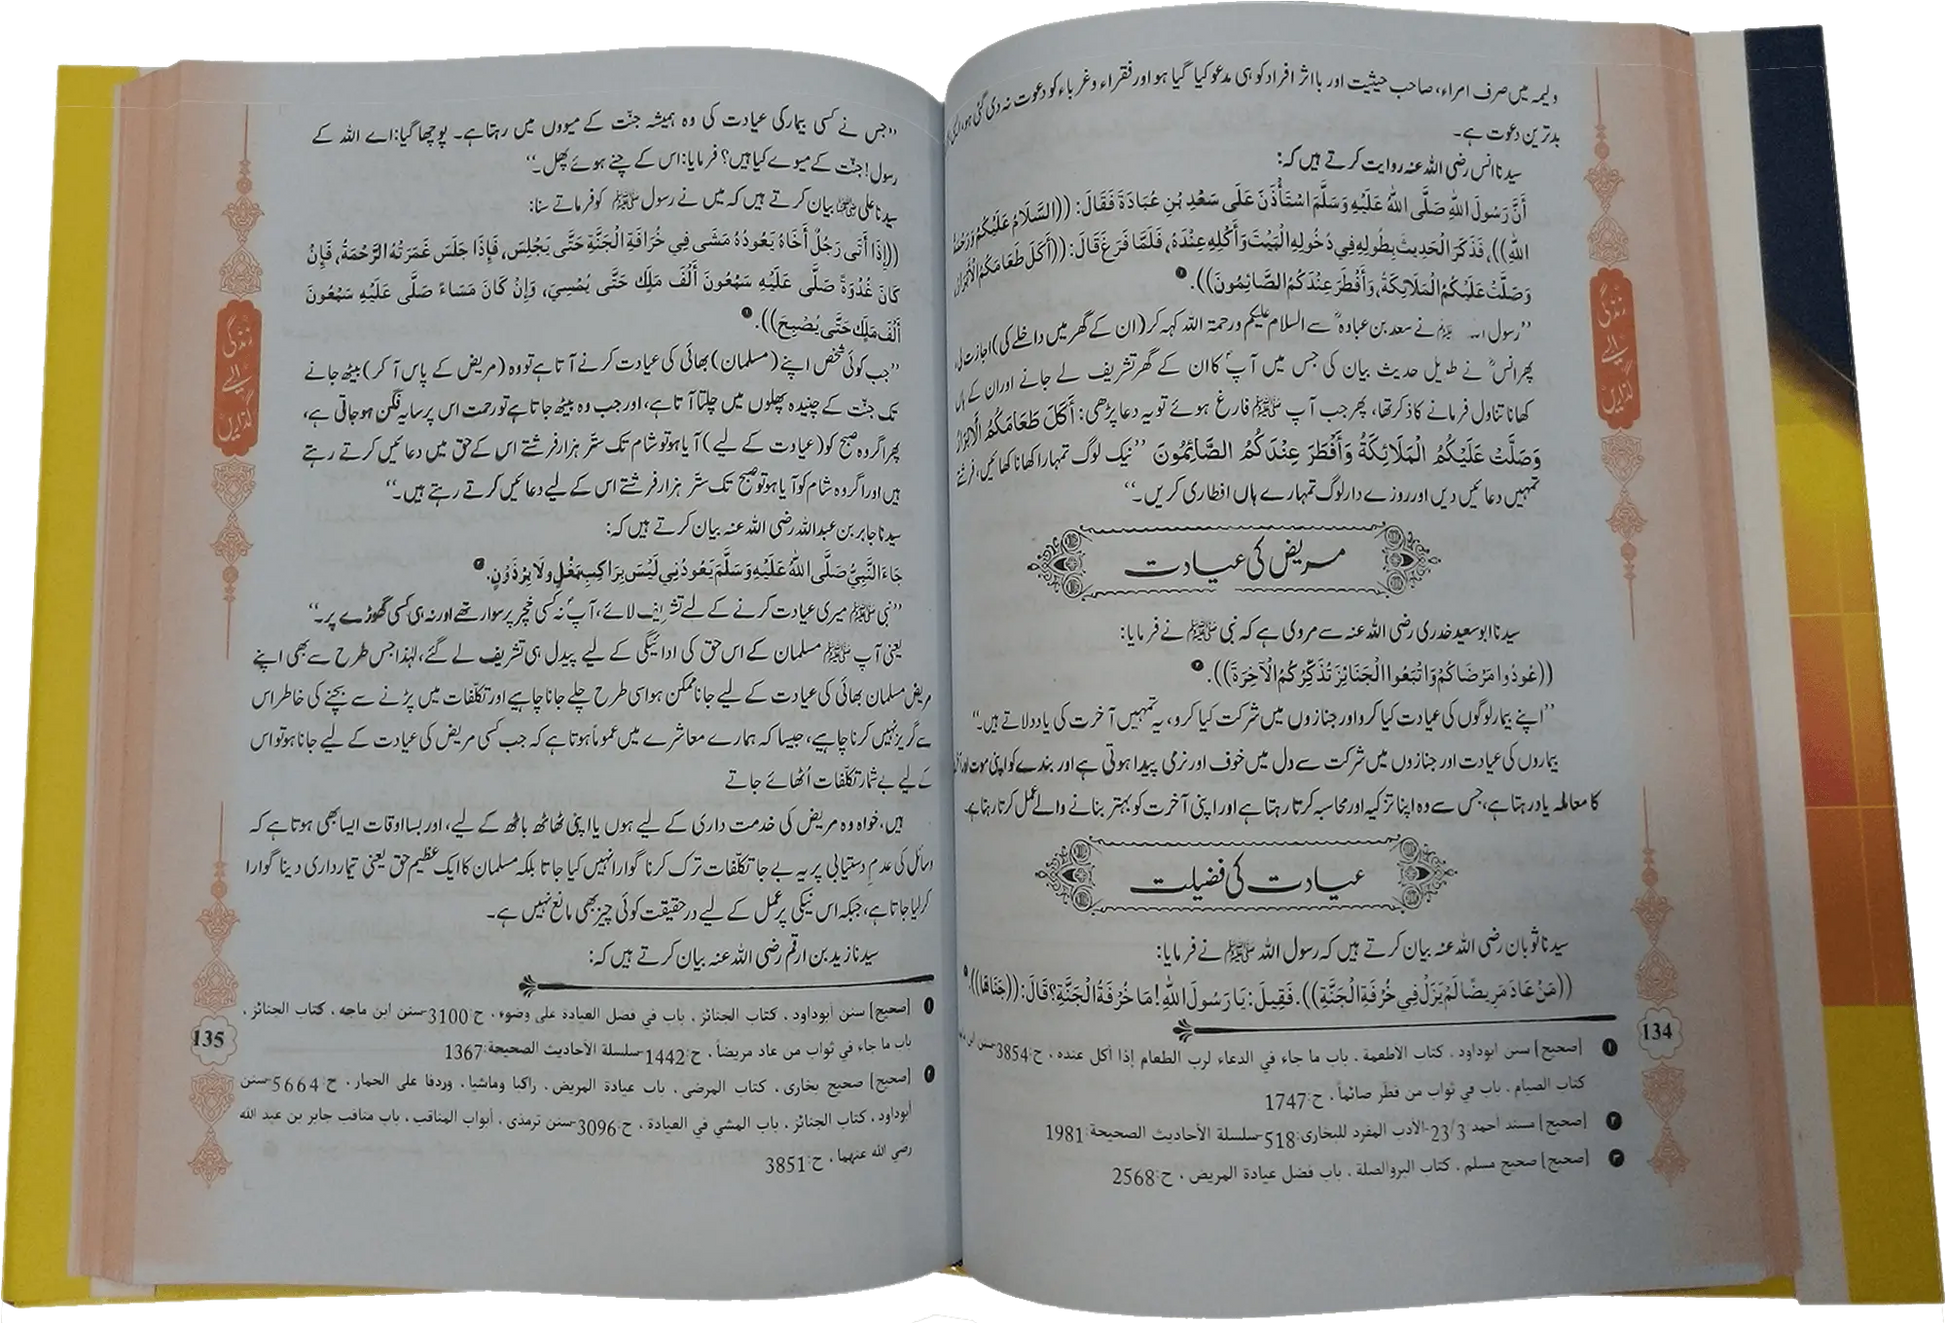 ولیمہ میں صرف امراء، صاحب حیثیت اور بااثر افراد کو ہی مدعو کیا گیا ہو اور فقراء وغرباء کو دعوت نہ دی گئی ہو،
بدترین دعوت ہے۔
سیدنا انس رضی اللہ عنہ روایت کرتے ہیں کہ:
أَنَّ رَسُولَ اللهِ صَلَّى اللهُ عَلَيْهِ وَسَلَّمَ اسْتَأْذَنَ عَلَى سَعْدِ بْنِ عُبَادَةَ فَقَالَ: ((السَّلَامُ عَلَيْكُمْ وَرَحْمَةُ
اللهِ))، فَذَكَرَ الْحَدِيثَ بِطُولِهِ فِي دُخُولِهِ الْبَيْتَ وَأَكْلِهِ عِنْدَهُ، فَلَمَّا فَرَغَ قَالَ: ((أَكَلَ طَعَامَكُمُ الْأَبْرَارُ
وَصَلَّتْ عَلَيْكُمُ الْمَلَائِكَةُ، وَأَفْطَرَ عِنْدَكُمُ الصَّائِمُونَ)). ❶
’’رسول اللہ ﷺ نے سعد بن عبادہؓ سے السلام علیکم ورحمۃ اللہ کہہ کر (ان کے گھر میں داخلے کی) اجازت لی،
پھر انسؓ نے طویل حدیث بیان کی جس میں آپؐ کا ان کے گھر تشریف لے جانے اور ان کے ہاں
کھانا تناول فرمانے کا ذکر تھا، پھر جب آپ ﷺ فارغ ہوئے تو یہ دعا پڑھی: أَكَلَ طَعَامَكُمُ الْأَبْرَارُ
وَصَلَّتْ عَلَيْكُمُ الْمَلَائِكَةُ وَأَفْطَرَ عِنْدَكُمُ الصَّائِمُونَ ’’نیک لوگ تمہارا کھانا کھائیں، فرشتے
تمہیں دعائیں دیں اور روزے دار لوگ تمہارے ہاں افطاری کریں۔‘‘
مریض کی عیادت
سیدنا ابوسعید خدری رضی اللہ عنہ سے مروی ہے کہ نبی ﷺ نے فرمایا:
((عُودُوا مَرْضَاكُمْ وَاتْبَعُوا الْجَنَائِزَ تُذَكِّرُكُمُ الْآخِرَةَ)). ❷
’’اپنے بیمار لوگوں کی عیادت کیا کرو اور جنازوں میں شرکت کیا کرو، یہ تمہیں آخرت کی یاد دلاتے ہیں۔‘‘
بیماروں کی عیادت اور جنازوں میں شرکت سے دل میں خوف اور نرمی پیدا ہوتی ہے اور بندے کو اپنی موت اور
کا معاملہ یاد رہتا ہے، جس سے وہ اپنا تزکیہ اور محاسبہ کرتا رہتا ہے اور اپنی آخرت کو بہتر بنانے والے عمل کرتا رہتا ہے۔
عیادت کی فضیلت
سیدنا ثوبان رضی اللہ عنہ بیان کرتے ہیں کہ رسول اللہ ﷺ نے فرمایا:
((مَنْ عَادَ مَرِيضًا لَمْ يَزَلْ فِي خُرْفَةِ الْجَنَّةِ)). فَقِيلَ: يَا رَسُولَ اللهِ! مَا خُرْفَةُ الْجَنَّةِ؟ قَالَ: ((جَنَاهَا)). ❸
❶ [صحيح] سنن ابوداود ، كتاب الاطعمة ، باب ما جاء في الدعاء لرب الطعام إذا أكل عنده ، ح:3854-سنن ابن
كتاب الصيام ، باب في ثواب من فطّر صائماً ، ح:1747
❷ [صحيح] مسند أحمد 23/3-الأدب المفرد للبخاری:518-سلسلة الأحاديث الصحيحة:1981
❸ [صحيح] صحيح مسلم ، كتاب البروالصلة ، باب فضل عيادة المريض ، ح:2568
134
زندگی
ایسے
گذاریں
’’جس نے کسی بیمار کی عیادت کی وہ ہمیشہ جنّت کے میووں میں رہتا ہے۔ پوچھا گیا: اے اللہ کے
رسول! جنّت کے میوے کیا ہیں؟ فرمایا: اس کے چنے ہوئے پھل۔‘‘
سیدنا علی بیان کرتے ہیں کہ میں نے رسول ﷺ کو فرماتے سنا:
((إِذَا أَتَى رَجُلٌ أَخَاهُ يَعُودُهُ مَشَى فِي خُرَافَةِ الْجَنَّةِ حَتَّى يَجْلِسَ، فَإِذَا جَلَسَ غَمَرَتْهُ الرَّحْمَةُ، فَإِنْ
كَانَ غُدْوَةً صَلَّى عَلَيْهِ سَبْعُونَ أَلْفَ مَلَكٍ حَتَّى يُمْسِيَ، وَإِنْ كَانَ مَسَاءً صَلَّى عَلَيْهِ سَبْعُونَ
أَلْفَ مَلَكٍ حَتَّى يُصْبِحَ)). ❶
’’جب کوئی شخص اپنے (مسلمان) بھائی کی عیادت کرنے آتا ہے تو وہ (مریض کے پاس آ کر) بیٹھ جانے
تک جنّت کے چنیدہ پھلوں میں چلتا آتا ہے، اور جب وہ بیٹھ جاتا ہے تو رحمت اس پر سایہ فگن ہو جاتی ہے،
پھر اگر وہ صبح کو (عیادت کے لیے) آیا ہو تو شام تک ستّر ہزار فرشتے اس کے حق میں دعائیں کرتے رہتے
ہیں اور اگر وہ شام کو آیا ہو تو صبح تک ستّر ہزار فرشتے اس کے لیے دعائیں کرتے رہتے ہیں۔‘‘
سیدنا جابر بن عبداللہ رضی اللہ عنہ بیان کرتے ہیں کہ:
جَاءَ النَّبِيُّ صَلَّى اللهُ عَلَيْهِ وَسَلَّمَ يَعُودُنِي لَيْسَ بِرَاكِبِ بَغْلٍ وَلَا بِرْذَوْنٍ. ❷
’’نبی ﷺ میری عیادت کرنے کے لیے تشریف لائے، آپؐ نہ کسی خچر پر سوار تھے اور نہ ہی کسی گھوڑے پر۔‘‘
یعنی آپ ﷺ مسلمان کے اس حق کی ادائیگی کے لیے پیدل ہی تشریف لے گئے، لہٰذا جس طرح سے بھی اپنے
مریض مسلمان بھائی کی عیادت کے لیے جانا ممکن ہو اسی طرح چلے جانا چاہیے اور تکلّفات میں پڑنے سے بچنے کی خاطر اس
سے گریز نہیں کرنا چاہیے، جیسا کہ ہمارے معاشرے میں عموماً ہوتا ہے کہ جب کسی مریض کی عیادت کے لیے جانا ہو تو اس
کے لیے بے شمار تکلّفات اُٹھائے جاتے
ہیں، خواہ وہ مریض کی خدمت داری کے لیے ہوں یا اپنی ٹھاٹھ باٹھ کے لیے، اور بسا اوقات ایسا بھی ہوتا ہے کہ
وسائل کی عدم دستیابی پر یہ بے جا تکلّفات ترک کرنا گوارا نہیں کیا جاتا بلکہ مسلمان کا ایک عظیم حق یعنی تیمارداری دینا گوارا
کر لیا جاتا ہے، جبکہ اس نیکی پر عمل کے لیے درحقیقت کوئی چیز بھی مانع نہیں ہے۔
سیدنا زید بن ارقم رضی اللہ عنہ بیان کرتے ہیں کہ:
❶ [صحيح] سنن أبوداود ، كتاب الجنائز ، باب في فضل العيادة على وضوء ، ح:3100-سنن ابن ماجه ، كتاب الجنائز ،
باب ما جاء في ثواب من عاد مريضاً ، ح:1442-سلسلة الأحاديث الصحيحة:1367
❷ [صحيح] صحيح بخاری ، كتاب المرضى ، باب عيادة المريض ، راكبا وماشيا ، وردفا على الحمار ، ح:5664-سنن
أبوداود ، كتاب الجنائز ، باب المشي في العيادة ، ح:3096-سنن ترمذی ، أبواب المناقب ، باب مناقب جابر بن عبد الله
رضي الله عنهما ، ح:3851
135
زندگی
ایسے
گذاریں